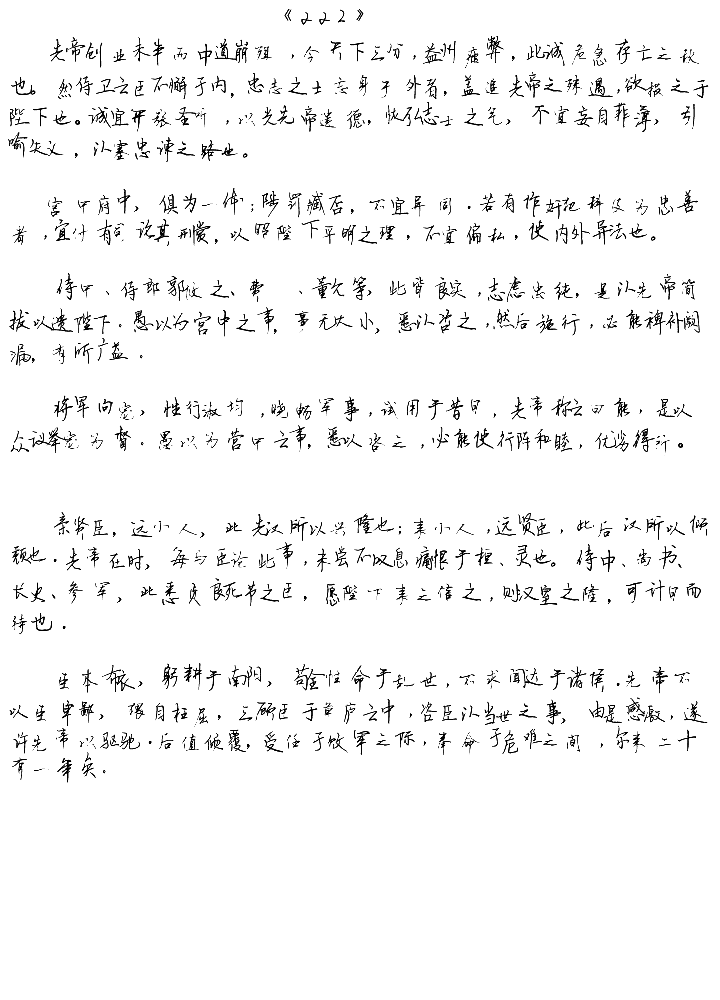 《222》
先帝创业未半而中道崩殂，今天下三分，益州疲弊，此诚危急存亡之秋
也。然侍卫之臣不懈于内，忠志之士忘身于外者，盖追先帝之殊遇，欲报之于
陛下也。诚宜开张圣听，以光先帝遗德，恢弘志士之气，不宜妄自菲薄，引
喻失义，以塞忠谏之路也。
宫中府中，俱为一体；陟罚臧否，不宜异同．若有作奸犯科及为忠善
者，宜付有司论其刑赏，以昭陛下平明之理，不宜偏私，使内外异法也。
侍中、侍郎郭攸之、费 、董允等，此皆良实，志虑忠纯，是以先帝简
拔以遗陛下．愚以为宫中之事，事无大小，悉以咨之，然后施行，必能裨补阙
漏，有所广益．
将军向宠，性行淑均，晓畅军事，试用于昔日，先帝称之曰能，是以
众议举宠为督．愚以为营中之事，悉以咨之，必能使行阵和睦，优劣得所。
亲贤臣，远小人，此先汉所以兴隆也；亲小人，远贤臣，此后汉所以倾
颓也．先帝在时，每与臣论此事，未尝不叹息痛恨于桓、灵也。侍中、尚书、
长史、参军，此悉贞良死节之臣，愿陛下亲之信之，则汉室之隆，可计日而
待也．
臣本布衣，躬耕于南阳，苟全性命于乱世，不求闻达于诸侯．先帝不
以臣卑鄙，猥自枉屈，三顾臣于草庐之中，咨臣以当世之事，由是感激，遂
许先帝以驱驰．后值倾覆，受任于败军之际，奉命于危难之间，尔来二十
有一年矣．